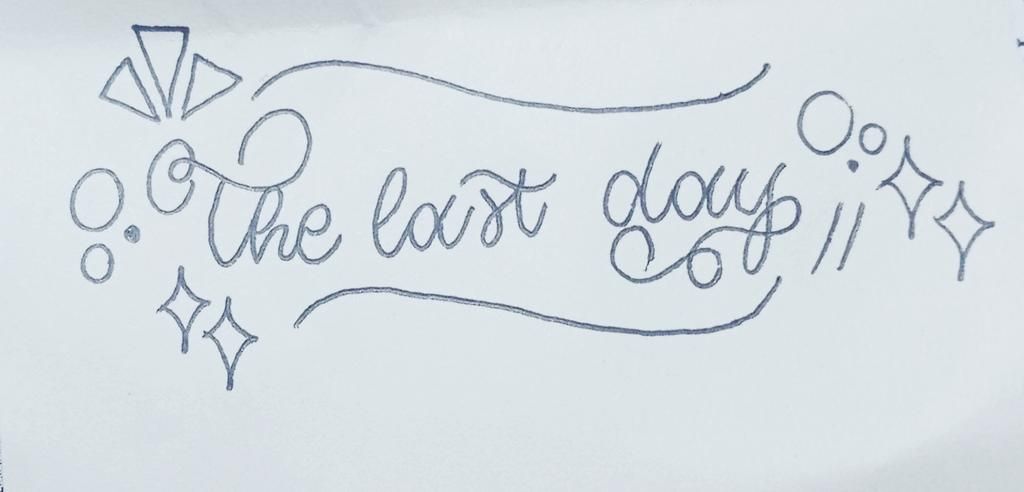 The last day